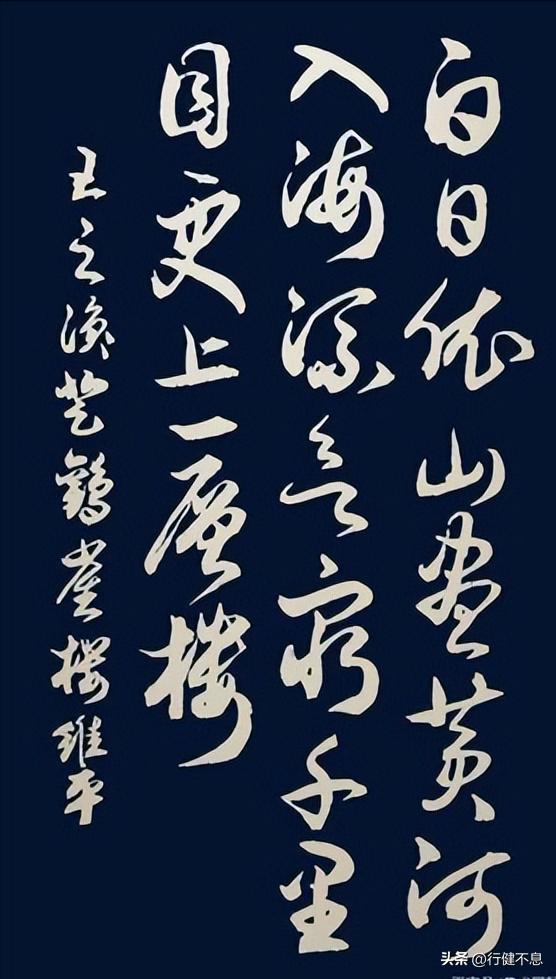 白日依山尽黄河
入海流欲穷千里
目更上一层楼
王之涣登鹳雀楼维平
头条 @行健不息